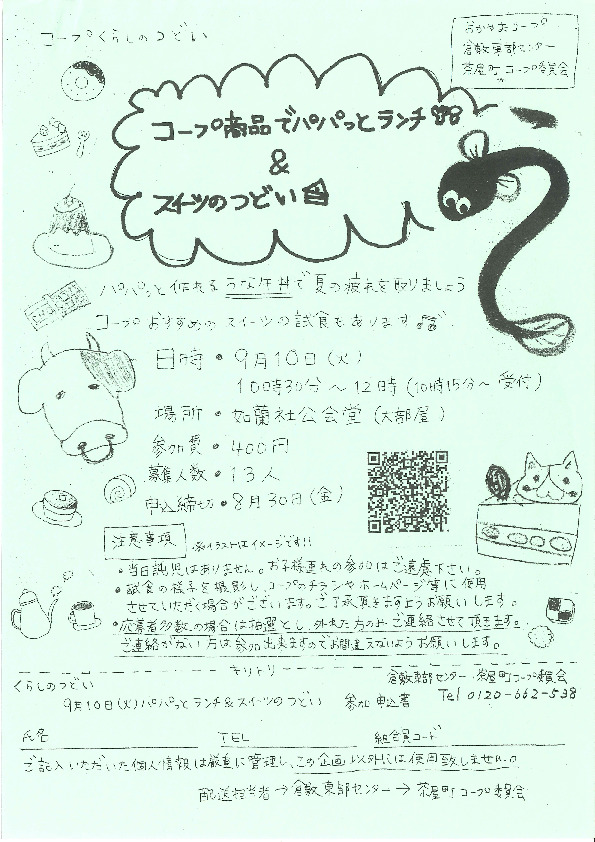 コープくらしのつどい
おかやまコープ
倉敷東部センター
茶屋町コープ委員会
コープ商品でパパっとランチ
&
スイーツのつどい
パパっと作れるうな牛丼で夏の疲れを取りましょう
コープおすすめのスイーツの試食もあります
日時・9月10日(火)
10時30分～12時(10時15分～受付)
場所・如蘭社公会堂(大部屋)
参加費・400円
募集人数・13人
申込締切・8月30日(金)
注意事項 ※イラストはイメージです!!
・当日託児はありません。お子様連れの参加はご遠慮下さい。
・試食の様子を撮影し、コープのチラシやホームページ等に使用
させていただく場合がございます。ご了承頂きますようお願いします。
・応募者多数の場合は抽選とし、外れた方のみご連絡させて頂きます。
ご連絡がない方は参加出来ますのでお間違えないようお願いします。
キリトリ
くらしのつどい
倉敷東部センター・茶屋町コープ委員会
9月10日(火)パパっとランチ&スイーツのつどい 参加申込書 Tel 0120-662-538
氏名 TEL 組合員コード
ご記入いただいた個人情報は厳重に管理し、この企画以外には使用致しません。
配送担当者→倉敷東部センター→茶屋町コープ委員会